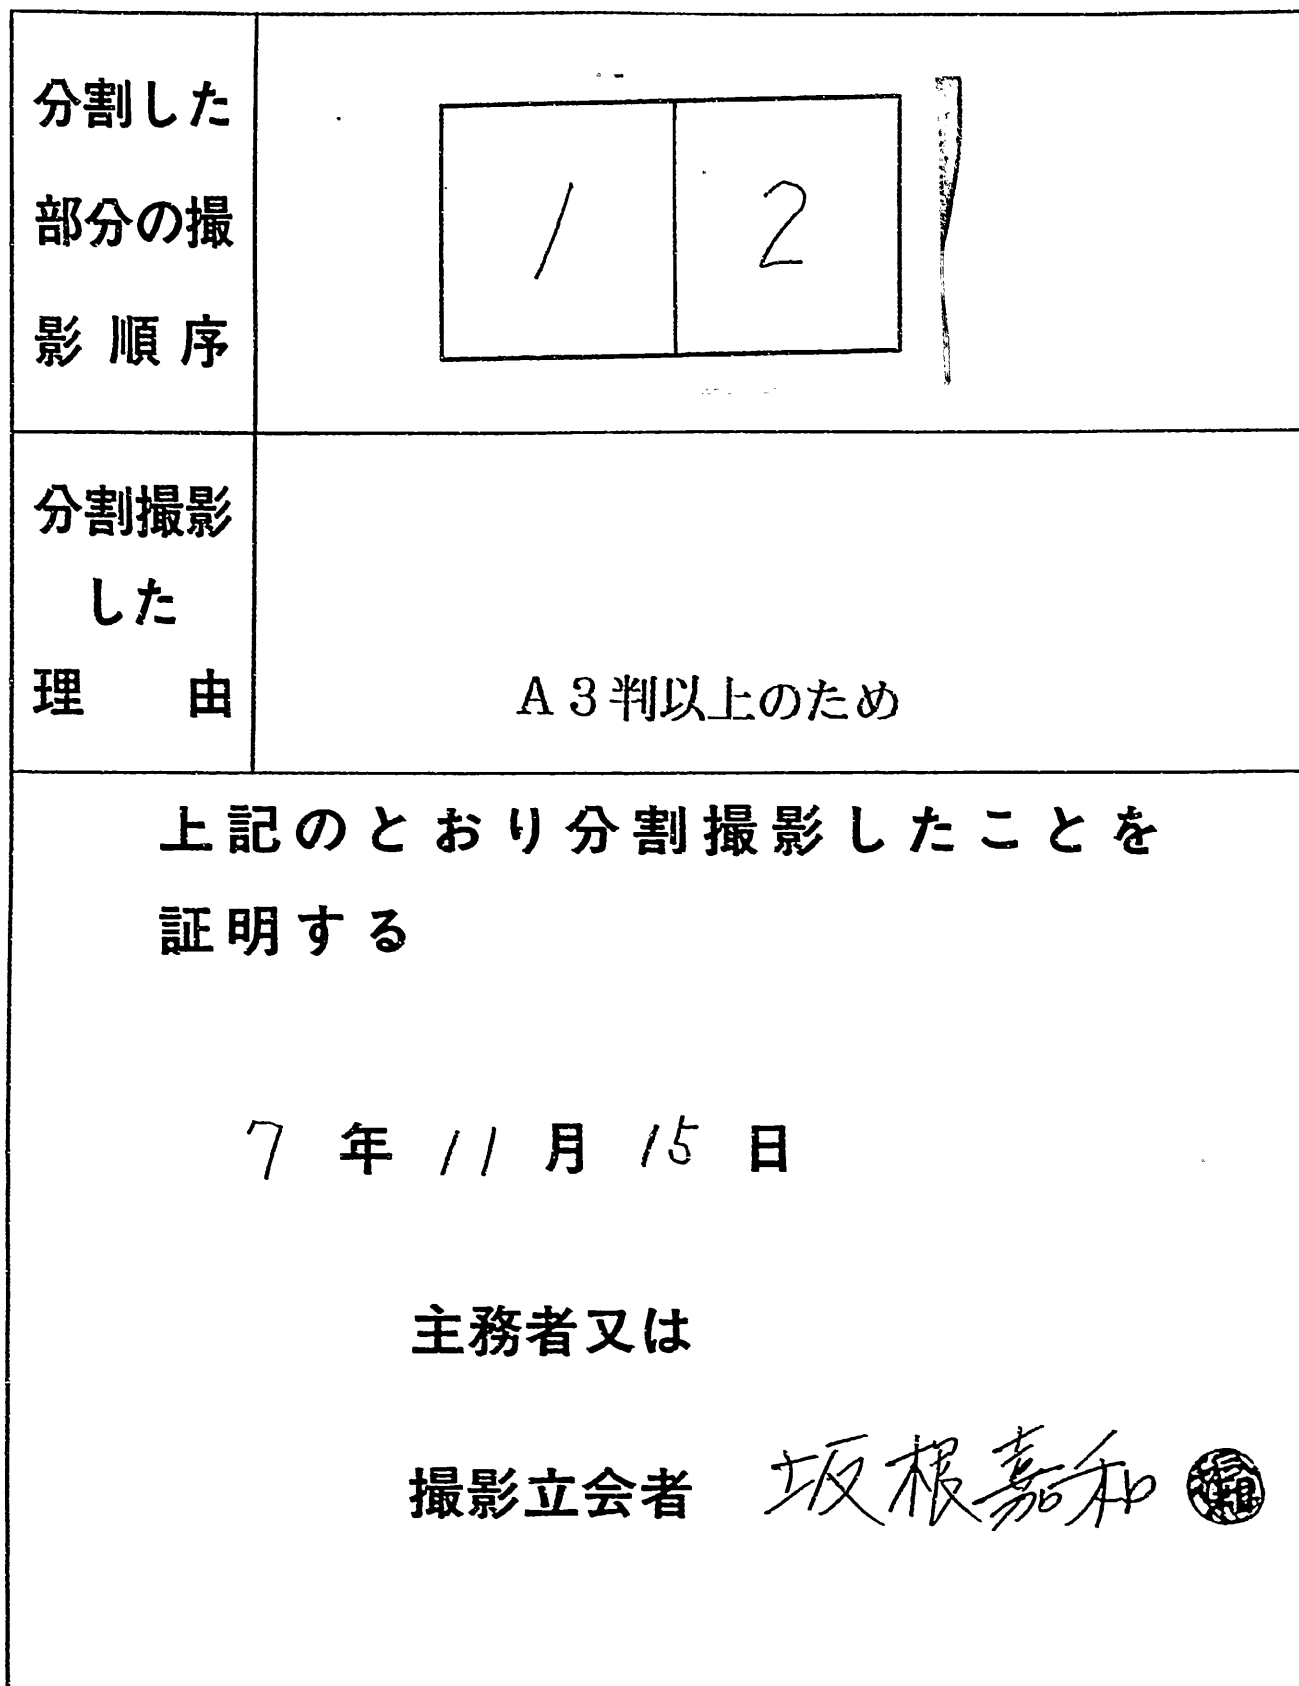 分割した
部分の撮
影順序
1 2
分割撮影
した
理由
A3判以上のため
上記のとおり分割撮影したことを
証明する
7年11月15日
主務者又は
撮影立会者 坂根嘉和